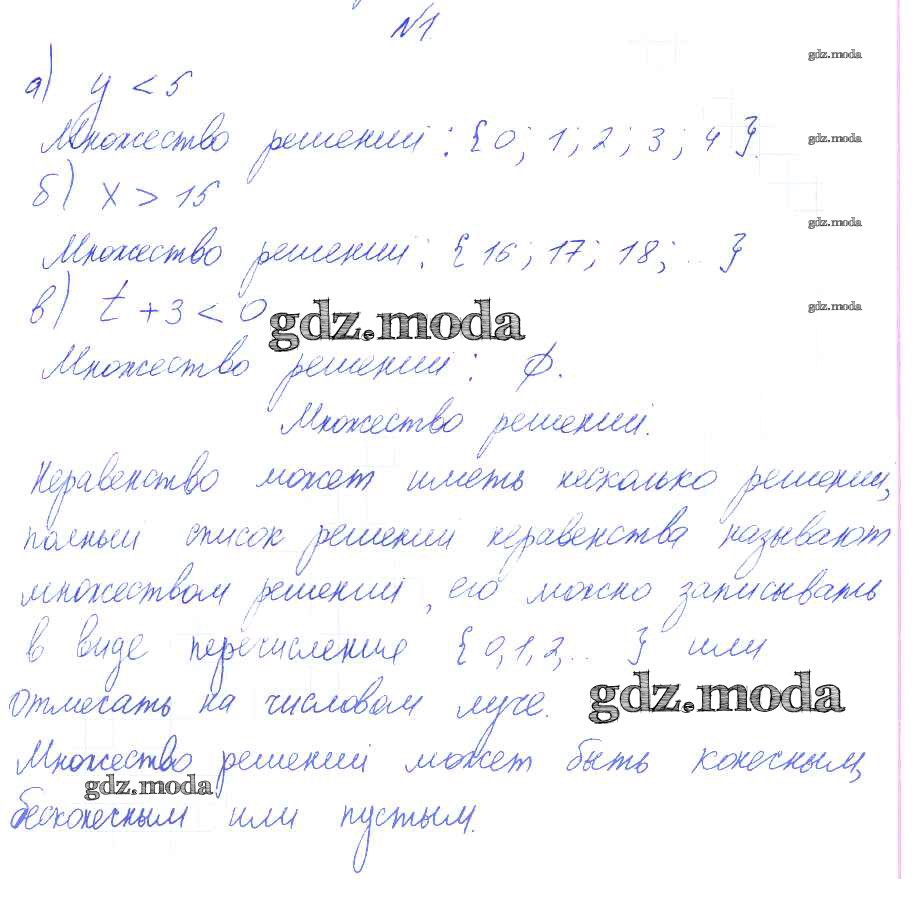 №1.
gdz.moda
а) y < 5
gdz.moda
Множество решений: {0; 1; 2; 3; 4}.
б) x > 15
gdz.moda
Множество решений: {16; 17; 18; ...}
в) t + 3 < 0
gdz.moda
gdz.moda
Множество решений: ∅.
Множество решений.
Неравенство может иметь несколько решений,
полный список решений неравенства называют
множеством решений, его можно записывать
в виде перечисления {0,1,2,...} или
отмечать на числовом луче.
gdz.moda
Множество решений может быть конечным,
gdz.moda
бесконечным или пустым.